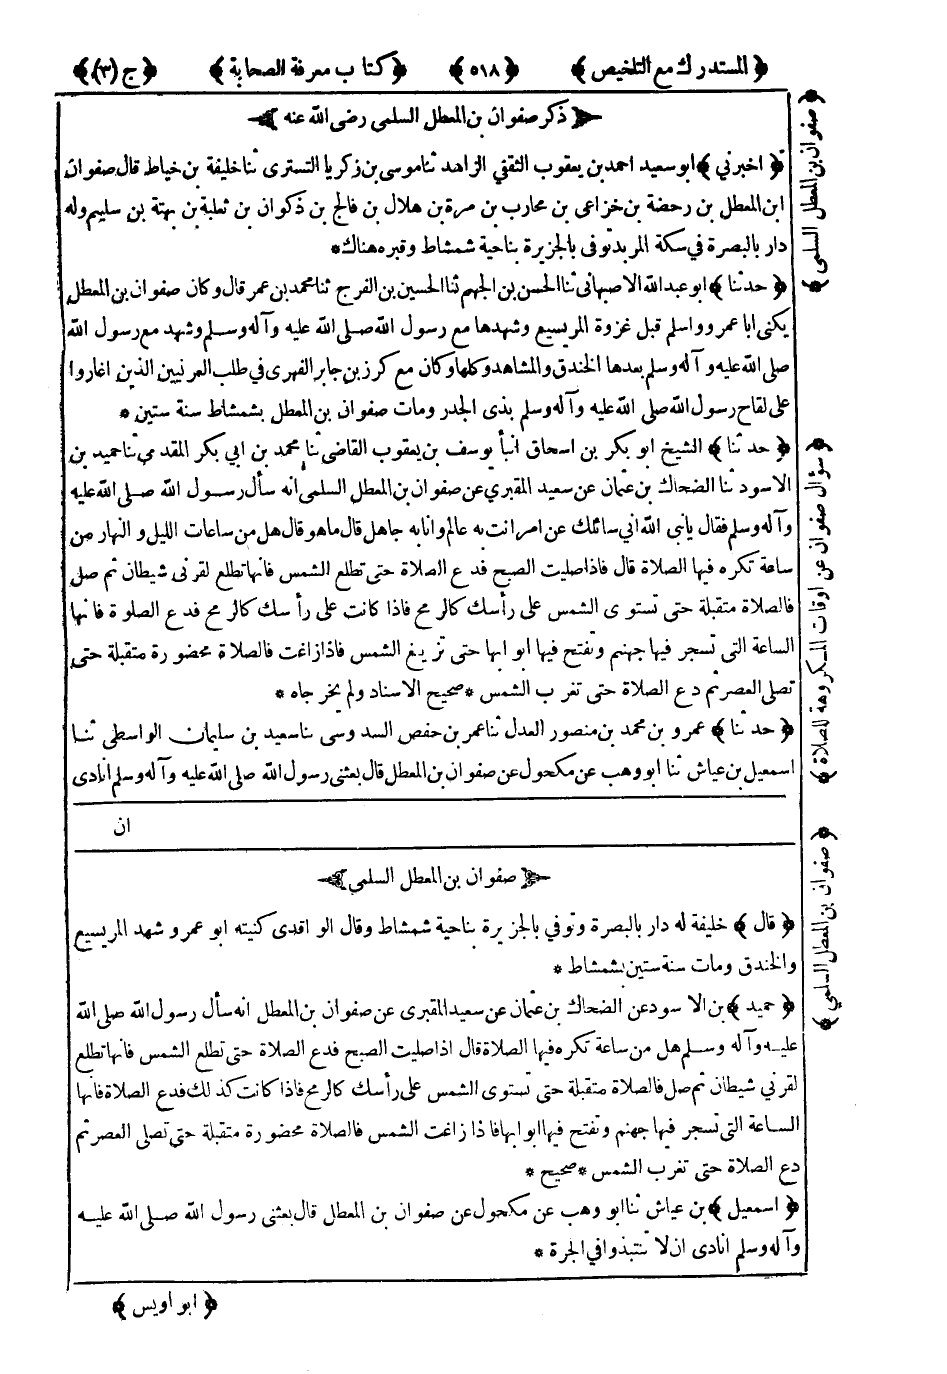 ﴿ المستدرك مع التلخيص ﴾ ﴿ ٥١٨ ﴾ ﴿ كتاب معرفة الصحابة ﴾ ﴿ ج (٣) ﴾
ذكر صفوان بن المعطل السلمى رضى الله عنه
﴿ اخبرني ﴾ ابو سعيد احمد بن يعقوب الثقفي الزاهد ثنا موسى بن زكريا التسترى ثنا خليفة بن خياط قال صفوان
ابن المعطل بن رحضة بن خزاعى بن محارب بن مرة بن هلال بن فالج بن ذكوان بن ثعلبة بن بهتة بن سليم وله
دار بالبصرة في سكة المربد توفى بالجزيرة بناحية شمشاط وقبره هناك *
﴿ حدثنا ﴾ ابو عبد الله الاصبهانى ثنا الحسن بن الجهم ثنا الحسين بن الفرج ثنا محمد بن عمر قال وكان صفوان بن المعطل
يكنى ابا عمرو واسلم قبل غزوة المريسيع وشهدها مع رسول الله صلى الله عليه وآله وسلم وشهد مع رسول الله
صلى الله عليه وآله وسلم بعدها الخندق والمشاهد وكلها وكان مع كرز بن جابر الفهرى في طلب العرنيين الذين اغاروا
على لقاح رسول الله صلى الله عليه وآله وسلم بذى الجدر ومات صفوان بن المعطل بشمشاط سنة ستين *
﴿ حدثنا ﴾ الشيخ ابو بكر بن اسحاق انبأ يوسف بن يعقوب القاضى ثنا محمد بن ابي بكر المقدمي ثنا حميد بن
الاسود ثنا الضحاك بن عثمان عن سعيد المقبري عن صفوان بن المعطل السلمى انه سأل رسول الله صلى الله عليه
وآله وسلم فقال يانبى الله انى سائلك عن امر انت به عالم وانا به جاهل قال ما هو قال هل من ساعات الليل والنهار من
ساعة تكره فيها الصلاة قال فاذا صليت الصبح فدع الصلاة حتى تطلع الشمس فانها تطلع لقرنى شيطان ثم صل
فالصلاة متقبلة حتى تستوى الشمس على رأسك كالرمح فاذا كانت على رأسك كالرمح فدع الصلوة فانها
الساعة التى تسجر فيها جهنم وتفتح فيها ابوابها حتى تزيغ الشمس فاذا زاغت فالصلاة محضورة متقبلة حتى
تصلى العصر ثم دع الصلاة حتى تغرب الشمس * صحيح الاسناد ولم يخرجاه *
﴿ حدثنا ﴾ عمرو بن محمد بن منصور العدل ثنا عمر بن حفص السدوسى ثنا سعيد بن سليمان الواسطى ثنا
اسمعيل بن عياش ثنا ابو وهب عن مكحول عن صفوان بن المعطل قال بعثنى رسول الله صلى الله عليه وآله وسلم انادى
ان
صفوان بن المعطل السلمى
﴿ قال ﴾ خليفة له دار بالبصرة وتوفي بالجزيرة بناحية شمشاط وقال الواقدى كنيته ابو عمرو شهد المريسيع
والخندق ومات سنة ستين بشمشاط *
﴿ حميد ﴾ بن الاسود عن الضحاك بن عثمان عن سعيد المقبرى عن صفوان بن المعطل انه سأل رسول الله صلى الله
عليه وآله وسلم هل من ساعة تكره فيها الصلاة قال اذا صليت الصبح فدع الصلاة حتى تطلع الشمس فانها تطلع
لقرني شيطان ثم صل فالصلاة متقبلة حتى تستوى الشمس على رأسك كالرمح فاذا كانت كذلك فدع الصلاة فانها
الساعة التى تسجر فيها جهنم وتفتح فيها ابوابها فاذا زاغت الشمس فالصلاة محضورة متقبلة حتى تصلى العصر ثم
دع الصلاة حتى تغرب الشمس * صحيح *
﴿ اسمعيل ﴾ بن عياش ثنا ابو وهب عن مكحول عن صفوان بن المعطل قال بعثنى رسول الله صلى الله عليه
وآله وسلم انادى ان لا تنتبذوا في الجرة *
﴿ ابو اويس ﴾
﴿ صفوان بن المعطل السلمى ﴾
﴿ سؤال صفوان عن اوقات المكروهة للصلاة ﴾
﴿ صفوان بن المعطل السلمي ﴾